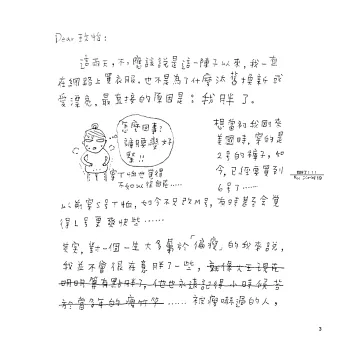 Dear 玫怡：
這兩天，不，應該說是這一陣子以來，我一直
在網路上買衣服。也不是為了什麼汰舊換新或
愛漂亮，最直接的原因是：我胖了。
怎麼回事？
褲腰變好
緊！！
想當初我剛來
美國時，穿的是
2號的褲子，如
今，已經要買到
6號了……
以前穿S號T恤，如今不只改M號，有時甚至會覺
得L號更爽快些……
其實，對一個一生大多屬於「偏瘦」的我來說，
我並不會很在意胖了一些，就像大王現在
明明算有點胖了，但他永遠記得小時候苦
於當多年的瘦竹竿……被壓嚇過的人，
3